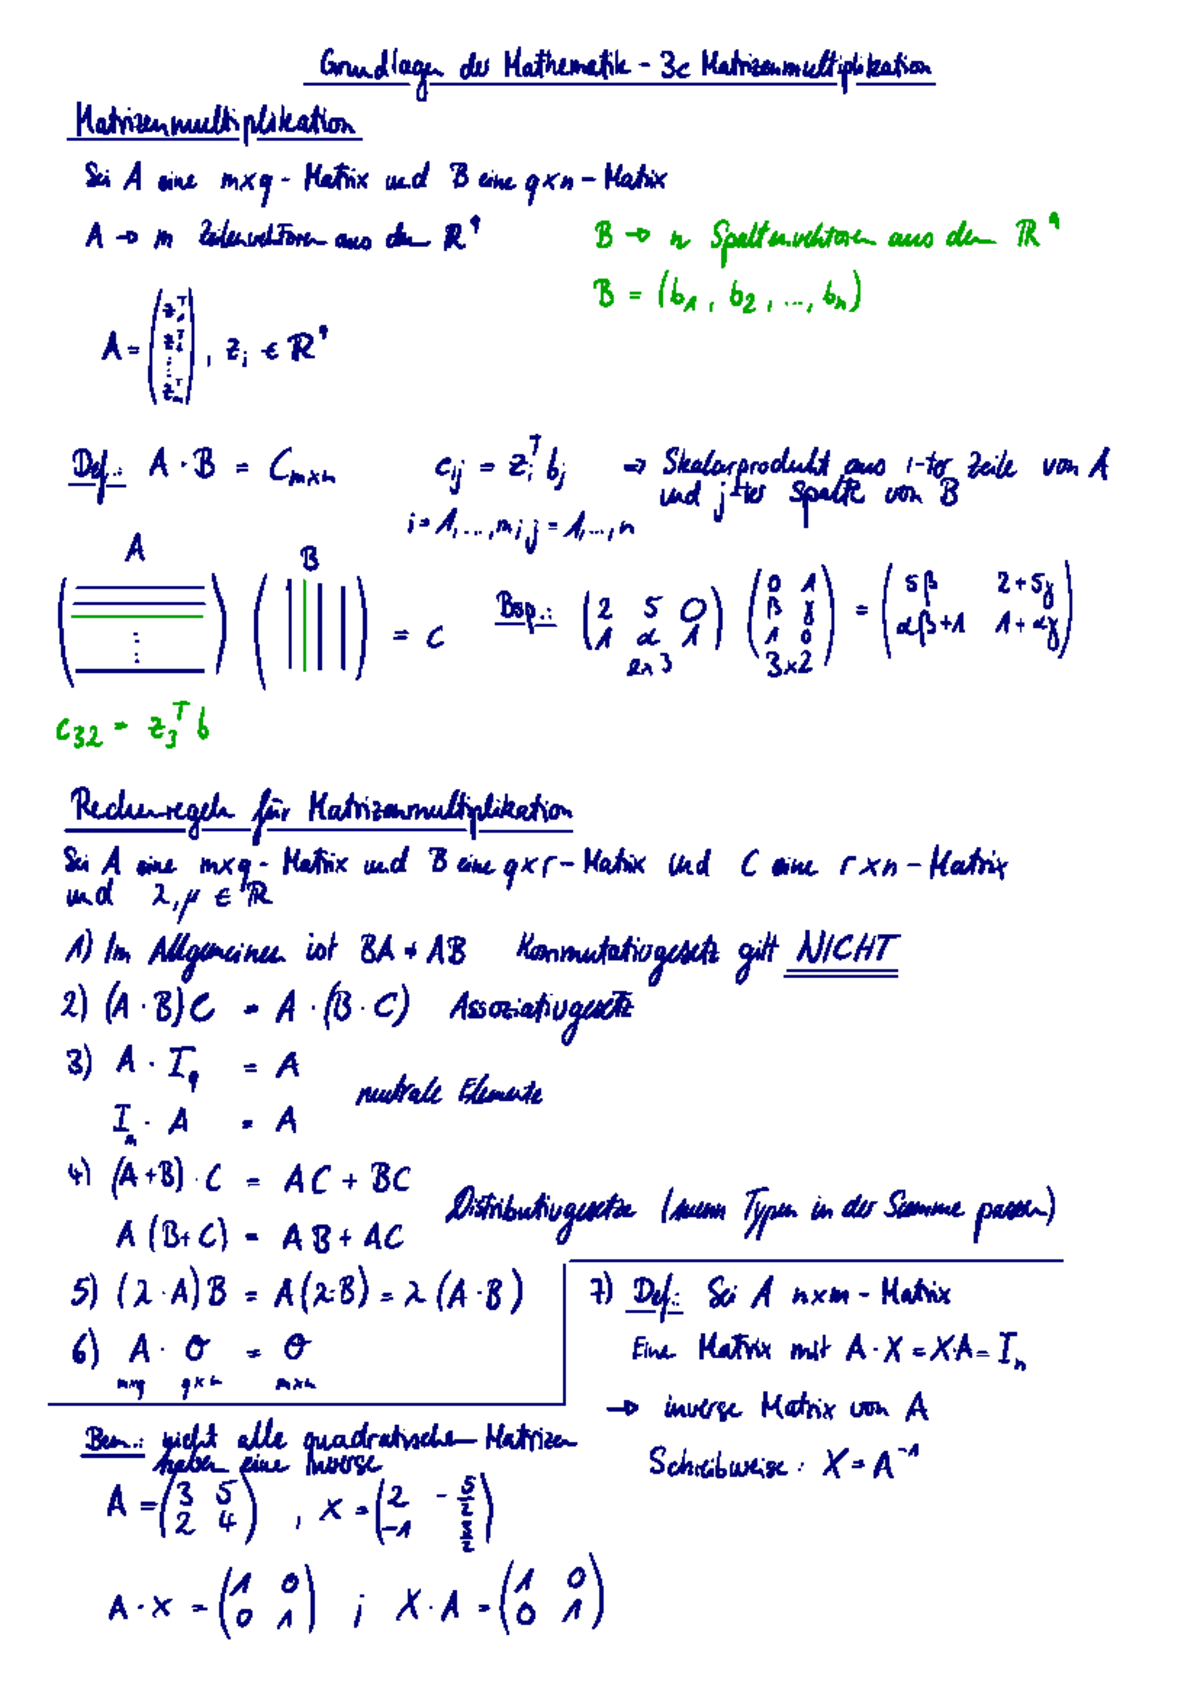 Grundlagen der Mathematik - 3c Matrizenmultiplikation
Matrizenmultiplikation
Sei A eine m×q - Matrix und B eine q×n - Matrix
A → m Zeilenvektoren aus dem ℝ^q
B → n Spaltenvektoren aus dem ℝ^q
B = (b₁, b₂, ..., bₙ)
A = (z₁ᵀ z₂ᵀ ⋮ zₘᵀ), zᵢ ∈ ℝ^q
Def.: A · B = C_{m×n}
c_{ij} = zᵢᵀ bⱼ ⇒ Skalarprodukt aus i-ter Zeile von A
und j-ter Spalte von B
i = 1, ..., m ; j = 1, ..., n
A B
= C
Bsp.: (2 5 0 / 1 α 1) (0 1 / β γ / 1 0) = (5β 2+5γ / αβ+1 1+αγ)
2×3 3×2
c₃₂ = z₃ᵀ b
Rechenregeln für Matrizenmultiplikation
Sei A eine m×q - Matrix und B eine q×r - Matrix und C eine r×n - Matrix
und λ, μ ∈ ℝ
1) Im Allgemeinen ist BA ≠ AB Kommutativgesetz gilt NICHT
2) (A · B) C = A · (B · C) Assoziativgesetz
3) A · I_q = A
neutrale Elemente
I_m · A = A
4) (A + B) · C = AC + BC
Distributivgesetze (wenn Typen in der Summe passen)
A (B + C) = AB + AC
5) (λ · A) B = A (λ · B) = λ (A · B)
6) A · O = O
m×q q×n m×n
7) Def.: Sei A n×m - Matrix
Eine Matrix mit A · X = X · A = Iₙ
→ inverse Matrix von A
Schreibweise: X = A⁻¹
Bem.: nicht alle quadratischen Matrizen
haben eine Inverse
A = (3 5 / 2 4), X = (2 -5/2 / -1 3/2)
A · X = (1 0 / 0 1) ; X · A = (1 0 / 0 1)